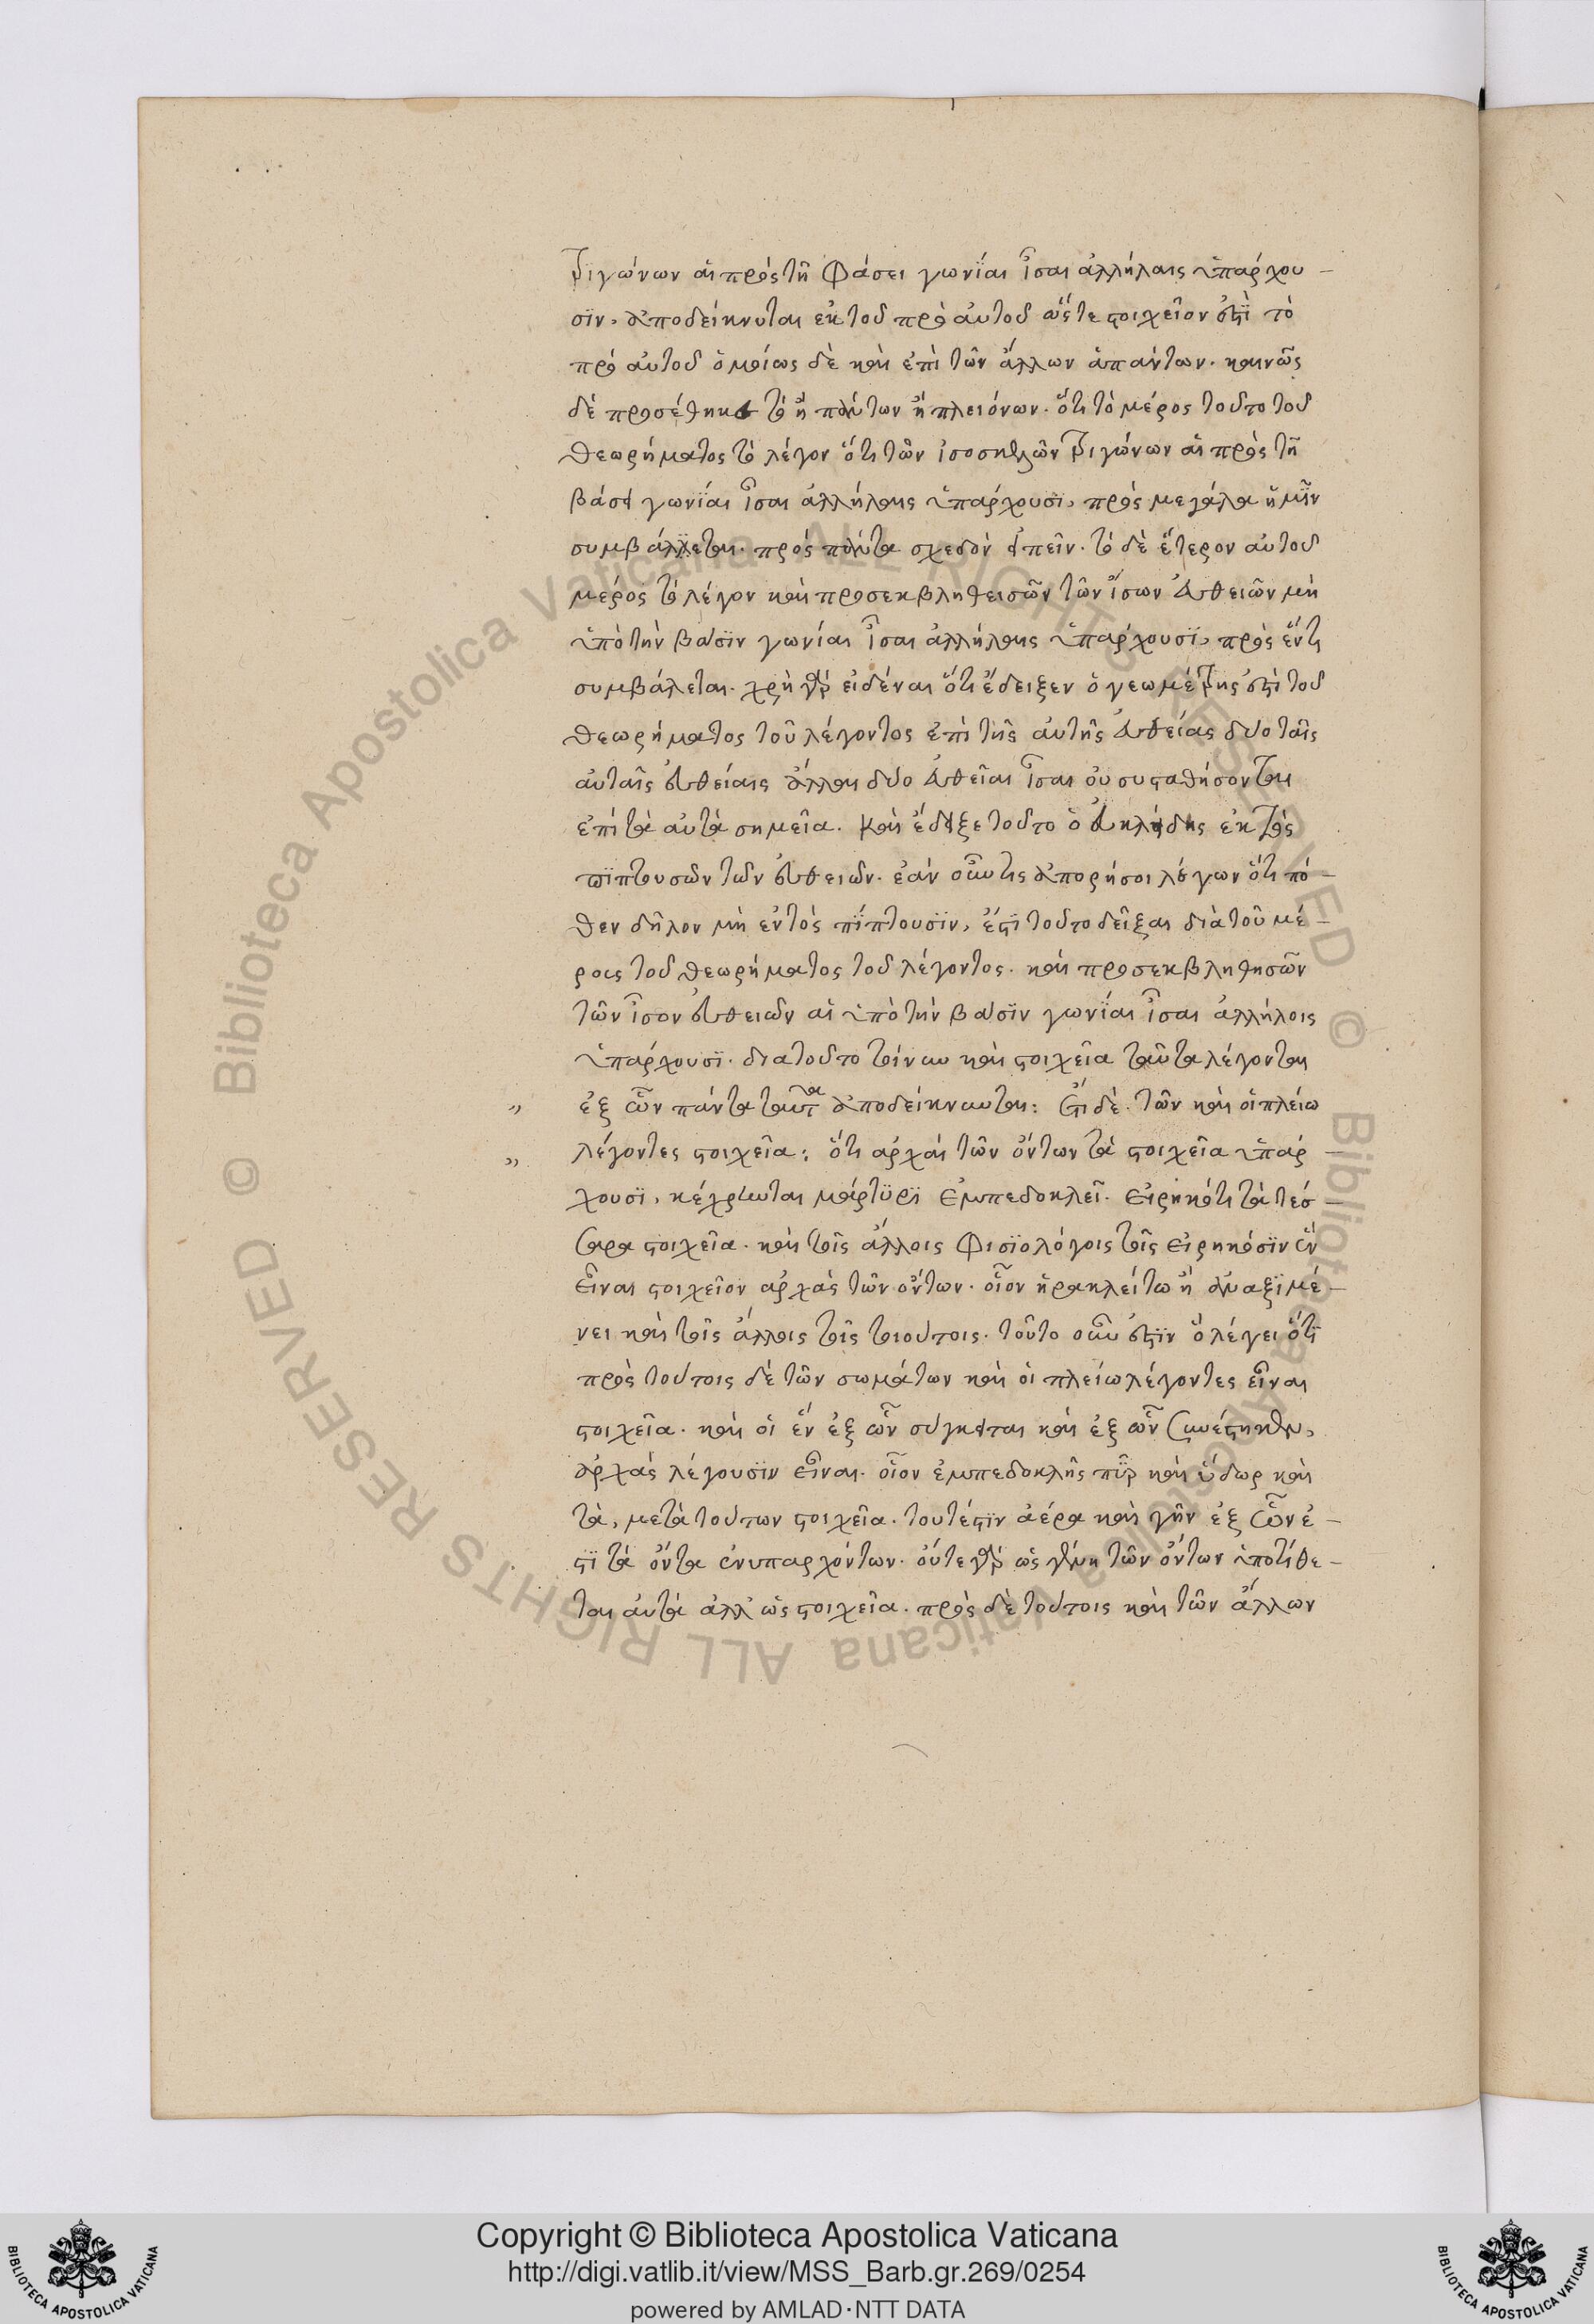 τριγώνων αἱ πρὸς τῆ φάσει γωνΐαι ἶσαι ἀλλήλαις ὑπάρχου-
σϊν, ἀποδείκνυται ἐκ τοῦ πρὸ αὐτοῦ ὥστε στοιχεῖον ἐστῒ τὸ
πρὸ αὐτοῦ ὁμοίως δὲ καὶ ἐπὶ τῶν ἄλλων ἁπάντων. καινῶς
δὲ προσέθηκε τὸ ἢ πάντων ἢ πλειόνων. ὅτι τὸ μέρος τοῦτο τοῦ
θεωρήματος τὸ λέγον ὅτι τῶν ἰσοσκελῶν τριγώνων αἱ πρὸς τῆ
βάσει γωνΐαι ἶσαι ἀλλήλαις ὑπάρχουσϊ, πρὸς μεγάλα ἡμῖν
συμβάλλεται. πρὸς πάντα σχεδὸν εἰπεῖν. τὸ δὲ ἕτερον αὐτοῦ
μέρος τὸ λέγον καὶ προσεκβληθεισῶν τῶν ἴσων εὐθειῶν μὴ
ὑπὸ τὴν βάσϊν γωνίαι ἶσαι ἀλλήλαις ὑπάρχουσϊ, πρὸς ἕν τι
συμβάλεται. χρὴ γὰρ εἰδέναι ὅτι ἔδειξεν ὁ γεωμέτρης ἐπὶ τοῦ
θεωρήματος τοῦ λέγοντος ἐπὶ τῆς αὐτῆς εὐθείας δύο ταῖς
αὐταῖς εὐθείαις ἄλλαι δύο εὐθεῖαι ἶσαι οὐ συσταθήσονται
ἐπὶ τὰ αὐτὰ σημεῖα. καὶ ἔδειξε τοῦτο ὁ εὐκλείδης ἐκ τὸς
πϊπτουσῶν τῶν εὐθειῶν. ἐὰν οὖν τις ἀπορήσοι λέγων ὅτι πό-
θεν δῆλον μὴ ἐντὸς πΐπτουσϊν, ἔστϊ τοῦτο δεῖξαι διὰ τοῦ μέ-
ρους τοῦ θεωρήματος τοῦ λέγοντος. καὶ προσεκβληθησῶν
τῶν ἶσον εὐθειῶν αἱ ὑπὸ τὴν βάσϊν γωνΐαι ἶσαι ἀλλήλοις
ὑπάρχουσϊ. διατοῦτο τοίνυν καὶ στοιχεῖα ταῦτα λέγονται
" ἐξ ὧν πάντα ταῦτα ἀποδείκνυνται: ἔτι δὲ. τῶν καὶ οἱ πλείω
" λέγοντες στοιχεῖα: ὅτι ἀρχαὶ τῶν ὄντων τὰ στοιχεῖα ὑπάρ-
χουσϊ, κέχρηται μάρτϋρϊ ἐμπεδοκλεῖ. εἰρηκότι τὰ τέσ-
σαρα στοιχεῖα. καὶ τοῖς ἄλλοις φισϊολόγοις τοῖς εἰρηκόσϊν ἓν
εἶναι στοιχεῖον ἀρχὰς τῶν ὄντων. οἷον ἡρακλείτω ἢ ἀναξϊμέ-
νει καὶ τοῖς ἄλλοις τοῖς τοιούτοις. τοῦτο οὖν ἐστϊν ὃ λέγει ὅτϊ
πρὸς τούτοις δὲ τῶν σωμάτων καὶ οἱ πλείω λέγοντες εἶναι
στοιχεῖα. καὶ οἱ ἓν ἐξ ὧν σύγκειται καὶ ἐξ ὧν συνέστηκεν,
ἀρχὰς λέγουσϊν εἶναι. οἷον ἐμπεδοκλῆς πῦρ καὶ ὕδωρ καὶ
τὰ, μετὰ τούτων στοιχεῖα. τουτέστϊν ἀέρα καὶ γῆν ἐξ ὧν ἐ-
στϊ τὰ ὄντα ἐνυπαρχόντων. οὔτε γὰρ ὡς γένη τῶν ὄντων ὑποτίθε-
ται αὐτὰ ἀλλ' ὡς στοιχεῖα. πρὸς δὲ τούτοις καὶ τῶν ἄλλων
Copyright © Biblioteca Apostolica Vaticana
http://digi.vatlib.it/view/MSS_Barb.gr.269/0254
powered by AMLAD·NTT DATA